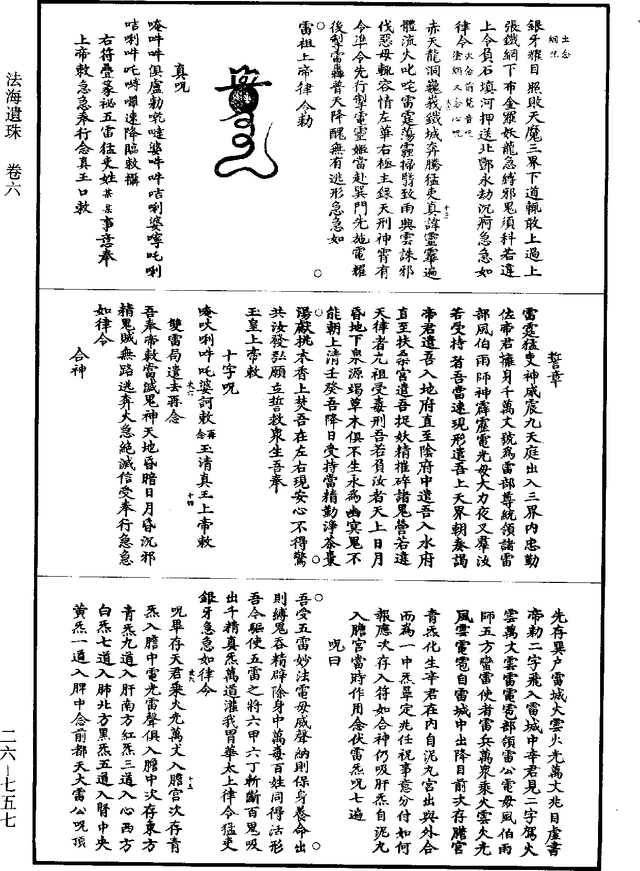 土念
烟咒
銀牙耀目照敗天魔三界下道輒敢上過上
張鐵網下布金羅妖龍急縛邪鬼須科若違
上令負石填河押送北酆永劫沉痾急急如
律令
赤天龍洞巍峩鐵城奔騰猛吏真諱靈霳遍
體流火叱咤雷霆蕩霾掃翳致雨興雲誅邪
伐惡毋輒容情左華右極主錄天刑神霄有
令準令先行掣電靈姬當赴巽門先施電耀
後掣雷轟普天降醒無有逃形急急如
雷祖上帝律令勅
真咒
唵吽吽俱盧勅吽噠婆吽吽咭唎婆嚀吒唎
咭唎吽吒㗀嚩速降臨敕攝
右符疊篆祕五雷猛吏姓某某事意奉
上帝敕急急奉行念真王口敕
法海遺珠 卷六
誓章
雷霆猛吏神威震九天庭出入三界內忠勤
佐帝君擁身千萬丈號為雷部尊統領諸雷
部風伯雨師神霹靂電光毋大力夜叉羣汝
若受持者吾當速現形遣吾上天界朝奏謁
帝君遣吾入地府直至陰府中遣吾入水府
直至扶桑宮遣吾捉妖精摧碎諸鬼營若違
天律者九祖受毒刑吾若負汝者天上日月
昏地下泉源竭草木俱不生永為幽冥鬼不
能朝上清壬癸吾降日受持當精勤淨茶棗
湯獻桃木香上焚吾在左右現安心不得驚
共汝發弘願立誓救衆生吾奉
玉皇上帝敕
十字咒
唵吙唎吽吒婆訶敕再念玉清真王上帝敕
雙雷局遣去再念
吾奉帝敕當滅鬼神天地昏暗日月昏沉邪
精鬼賊無路逃奔大急絶滅信受奉行急急
如律令
合神
先存巽户雷城火雲火光萬丈兆目虛書
帝勅二字飛入雷城中辛君見二字駕火
雲萬丈雲雷電雹部領雷公電毋風伯雨
師五方蠻雷使者雷兵萬衆乘火雲火光
風雲電雹自雷城中出降目前次存膽宮
青炁化生辛君在內自泥丸宮出與外合
而為一中炁罩定兆任祝事意分付如何
報應次存入符如合神仍吸肝炁自泥丸
入膽宮當時作用念伏雷炁咒七遍
咒曰
吾受五雷妙法電毋威聲納則保身養命出
則縛鬼吞精辟除身中萬毒百姓同得沽形
吾今驅使五雷之將六甲六丁斬斷百鬼吸
出千精真炁萬道灌我胃華太上律令猛吏
銀牙急急如律令
咒畢存天君乘火光萬丈入膽宮次存青
炁入膽中電光雷聲俱入膽中次存東方
青炁九道入肝南方紅炁三道入心西方
白炁七道入肺北方黑炁五道入腎中央
黃炁一道入脾中念前都天大雷公咒頂
二六—七五七